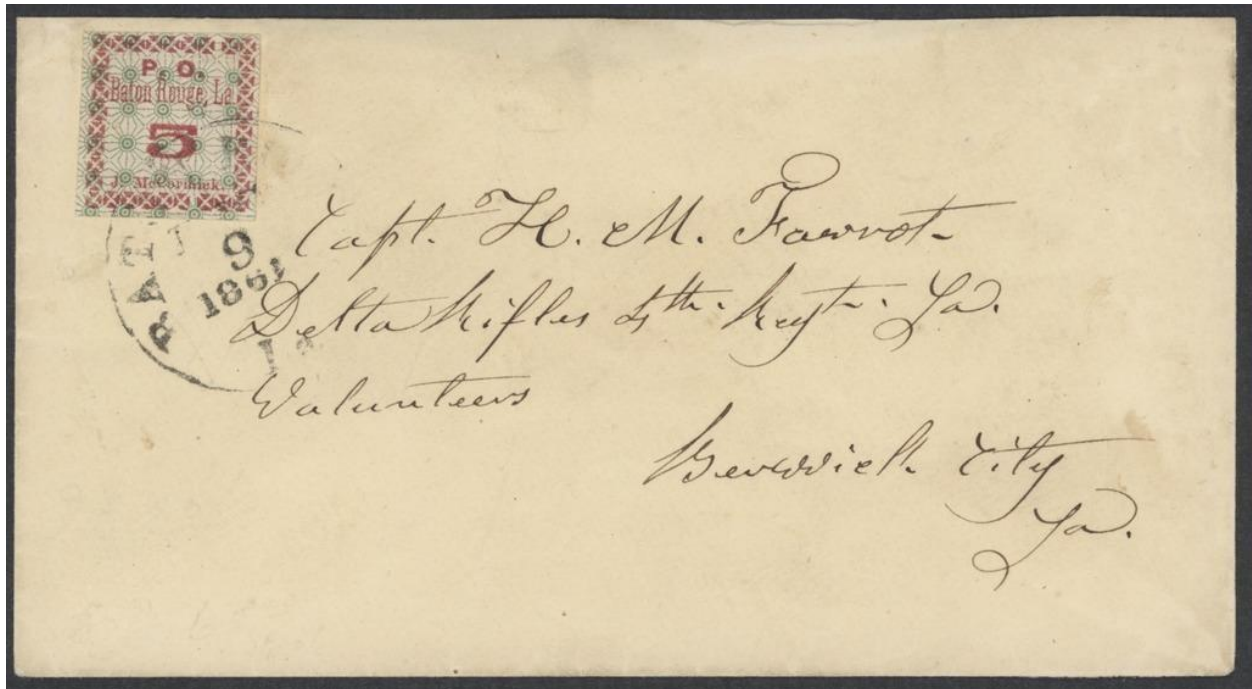 P. O.
Baton Rouge, La.
5
J. McCormick.
9
1861
La
Capt. H. M. Favrot
Delta Rifles 4th. Regt. La.
Volunteers
Berwick City
La.